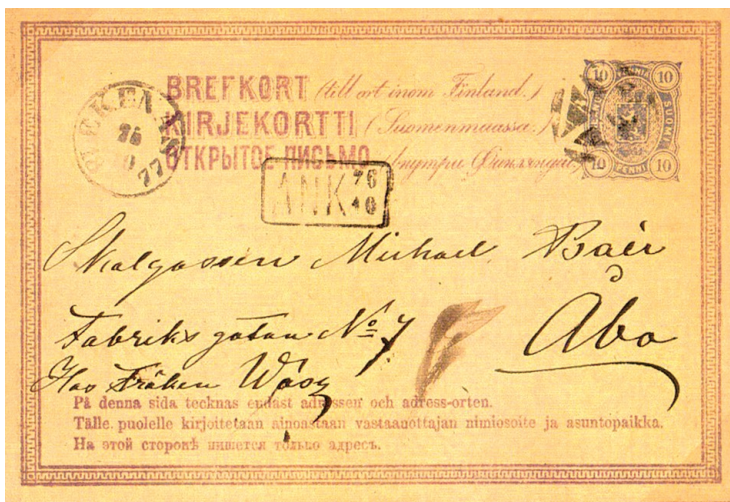 BREFKORT (till ort inom Finland.)
KIRJEKORTTI (Suomenmaassa.)
ОТКРЫТОЕ ПИСЬМО (внутри Финляндіи)
10 10
SUOMI
10 PENNI 10
77
ANK 26
10
Skolgossen Michael Baér
Åbo
Fabriks gatan No 7
Hos Fröken
På denna sida tecknas endast adressen och adress-orten.
Tälle puolelle kirjoitetaan ainoastaan vastaanottajan nimiosoite ja asuntopaikka.
На этой сторонѣ пишется только адресъ.